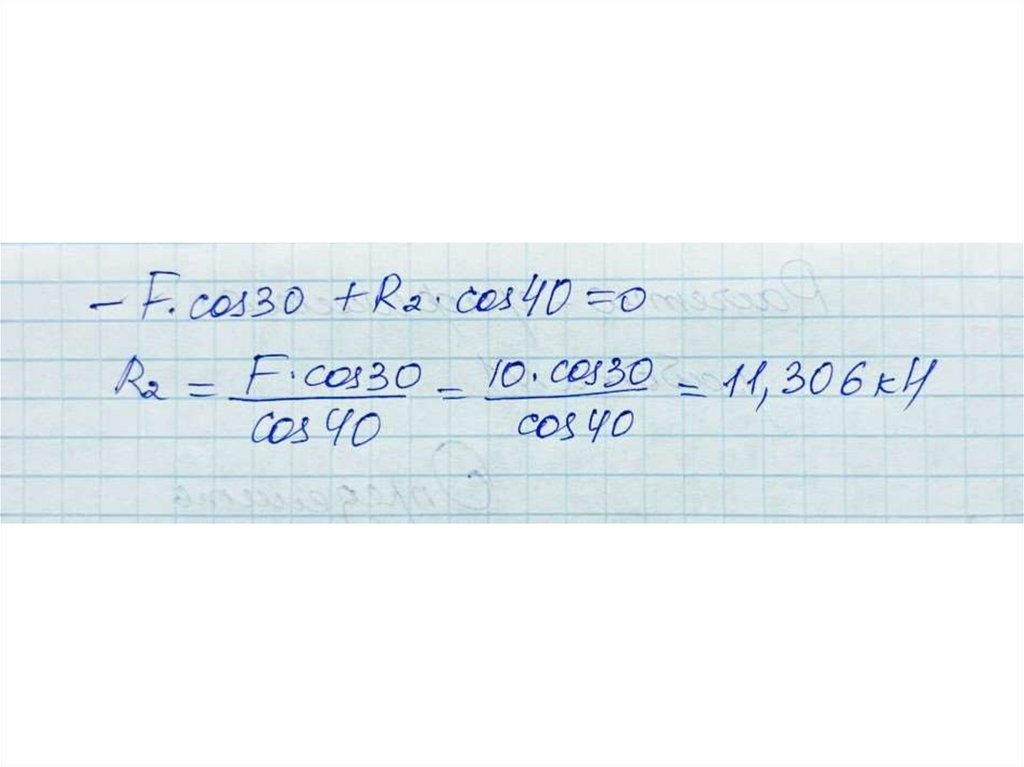 - F. cos30 + R2. cos40 = 0
R2 = F·cos30 / cos40 = 10·cos30 / cos40 = 11,306 кН